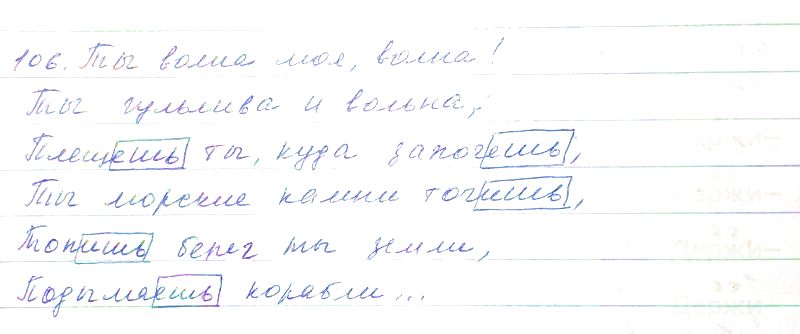 106. Ты волна моя, волна!
Ты гульлива и вольна,
Плещешь ты, куда захочешь,
Ты морские камни точишь,
Топишь берег ты земли,
Подымаешь корабли...